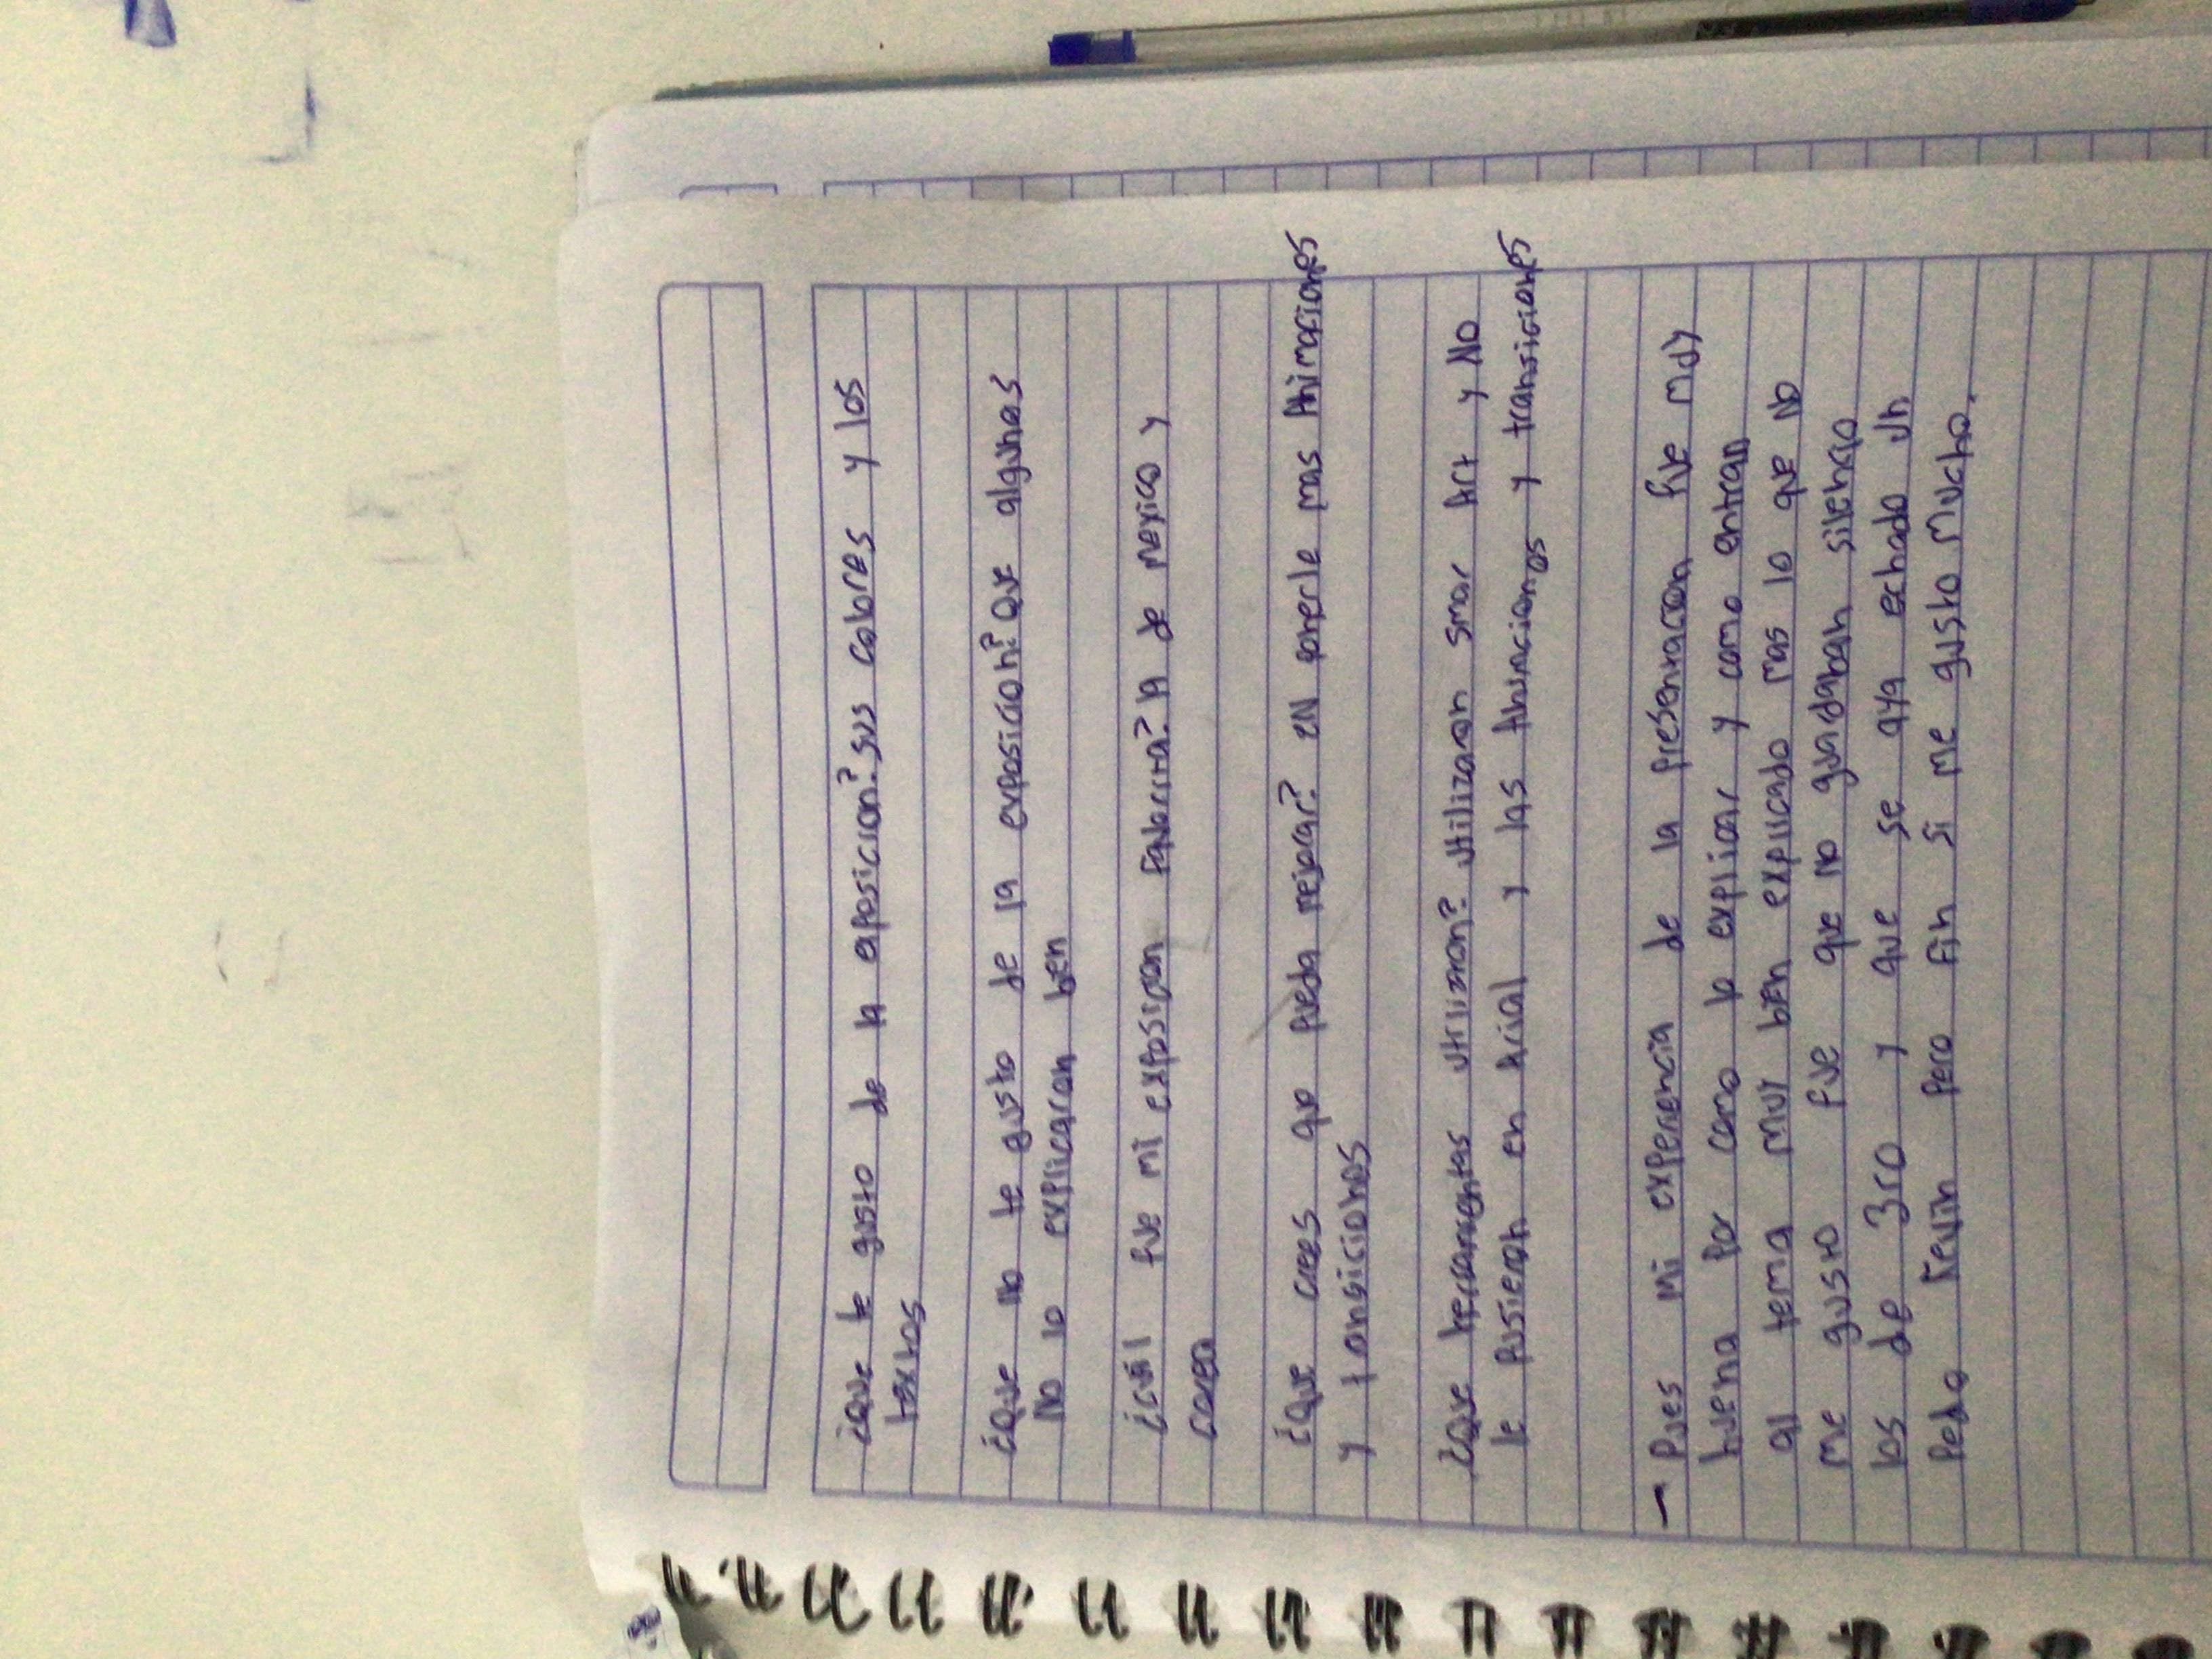 ¿Que te gusto de la eposicion? sus colores y los
textos
¿Que No te gusto de la exposicion? Que algunas
No lo explicaron bien
¿cuál fue mi exposicon faborita? la de Mexico y
corea
¿Que crees que pueda mejorar? en ponerle mas Animaciones
y transiciones
¿Que herramentas utilizaron? utilizaron Smar Art y No
le pusieron en Arial y las Animaciones y transiciones
- Pues Mi experiencia de la presentacion fue muy
buena Por como lo explicar y como entran
al tema mui bien explicado mas lo que No
me gusto fue que No guardaban silencio
los de 3ro y que se aya echado un
Pedo Kevin Pero fin si me gusto mucho.